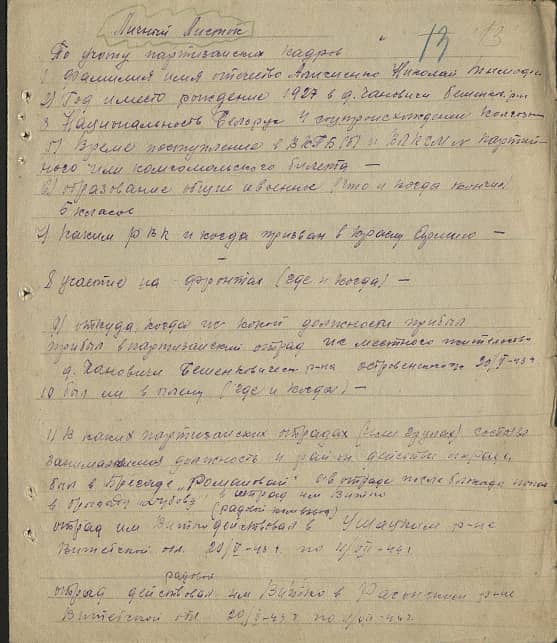 Личный Листок
13 13
По учету партизанских кадров
1 Фамилия имя отчество Николай
2) Год и место рождение 1927 в д. Хановичи Бешенк. р-н
3 Национальность Беларус 4 соцпроисхождение
5) Время поступление в ВКПБ(б) и ВЛКСМ № партий-
ного или комсомольского билета —
6) образование общие и военные что и когда кончил
5 классов
7) Каким РВК и когда призван в Красную Армию —
8 участие на фронтах (где и когда) —
9) откуда, когда и с какой должности прибыл
прибыл в партизанский отряд из местного жительства
д. Хановичи Бешенковичск. р-на 20/V-43 г
10 был ли в плену (где и когда) —
11 В каких партизанских отрядах (или групах) состоял
занимаемая должность и район действи отряда,
был в Бригаде „Романовай" в отряде после выхода попал
в бригаду „Дубова" в отряд им Витко
(рядовой)
отряд им Витко действовал в Ушацком р-не
Витебской обл. 20/V-43 г. по 4/VII-44 г.
рядовой
отряд действовал им Витко в Расонском р-не
Витебской обл 20/V-43 г по